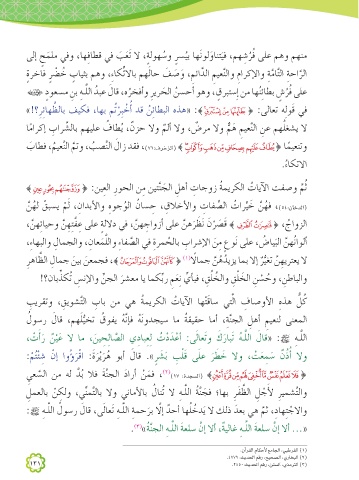 منهم وهم على فُرُشِهم، فيَتناوَلونَها بيُسرٍ وسُهولةٍ، لا تَعَبَ في قِطافِها، وفي مَلمَحٍ إلى
الرّاحةِ التّامّةِ والإكرامِ والنّعيمِ الدّائمِ، وَصَفَ حالَهم بالاتّكاءِ، وهم بثيابٍ خُضْرٍ فاخرةٍ
على فُرُشٍ بطائنُها من إستبرقٍ، وهو أحسنُ الحريرِ وأفخَرُه، قالَ عبدُ اللّهِ بن مسعود
في قولِه تعالى: ﴿ بَطَآئِنُهَا مِنْ إِسْتَبْرَقٍ ﴾: «هذه البطائنُ قد أُخبِرتُم بها، فكيف بالظّهائرِ؟!»
لا يشغَلُهم عن النّعيمِ همٌّ ولا مرضٌ، ولا ألمٌ ولا حزنٌ، يُطافُ عليهم بالشّرابِ إكرامًا
وتنعيمًا ﴿ يُطَافُ عَلَيْهِم بِصِحَافٍ مِّن ذَهَبٍ وَأَكْوَابٍ ﴾ (الزخرف: ٧١)، فقد زالَ النّصَبُ، وتمّ النّعيمُ، فطابَ
الاتكاءُ.
ثُمّ وصفت الآياتُ الكريمةُ زوجاتِ أهلِ الجنّتَينِ من الحورِ العِينِ: ﴿ وَزَوَّجْنَاهُم بِحُورٍ عِينٍ ﴾
(الدخان: ٥٤)، فهُنّ خَيراتُ الصِّفاتِ والأخلاقِ، حِسانُ الوُجوهِ والأبدانِ، لَم يَسبِق لهُنّ
الزواجُ، ﴿ قَاصِرَاتُ الطَّرْفِ ﴾ قَصَرْنَ نَظَرَهنّ على أزواجِهنّ، في دلالةٍ على عِفّتِهنّ وحيائهنّ،
ألوانُهنّ البَياضُ، على نَوعٍ مِنَ الإشرابِ بالحُمرةِ في الصَّفاءِ واللَّمَعانِ، والجمالِ والبهاءِ،
لا يعتريهنّ تغيُّرٌ إلّا بما يزيدُهُنّ جمالًا(١) ﴿ كَأَنَّهُنَّ الْيَاقُوتُ وَالْمَرْجَانُ ﴾، فجمعنَ بينَ جمالِ الظّاهرِ
والباطنِ، وحُسْنِ الخَلْقِ والخُلُقِ، فبأيّ نِعَمِ ربِّكما يا معشرَ الجنّ والإنسِ تُكذِّبان؟!
كلُّ هذه الأوصافِ الّتي ساقَتْها الآياتُ الكريمةُ هي من بابِ التّشويقِ، وتقريبِ
المعنى لنعيمِ أهلِ الجنّة، أما حقيقةُ ما سيجدونَهُ فإنّهُ يفوقُ تخيُّلَهم، قالَ رسولُ
اللّه ﷺ: «قَالَ اللّهُ تَبارَكَ وتَعالَى: أَعْدَدْتُ لِعِبادِي الصَّالِحينَ، ما لا عَيْنٌ رَأَتْ،
ولا أُذُنٌ سَمِعَتْ، ولا خَطَرَ عَلَى قَلْبِ بَشَرٍ». قالَ أبو هُرَيْرَةَ: اقْرَؤُوا إنْ شِئْتُمْ:
﴿ فَلَا تَعْلَمُ نَفْسٌ مَّا أُخْفِيَ لَهُم مِّن قُرَّةِ أَعْيُنٍ ﴾ (السجدة: ١٧)(٢)، فمَنْ أرادَ الجنّةَ فلا بُدَّ له من السّعيِ
والتّشميرِ لأجْلِ الظّفَرِ بها؛ فجَنّةُ اللّه لا تُنالُ بالأماني ولا بالتّمنّي، ولكنْ بالعملِ
والاجْتِهادِ، ثمّ هي بعدَ ذلك لا يَدخُلُها أحدٌ إلّا برَحمةِ اللّهِ تَعالَى، قال رسولُ اللّهِ ﷺ:
«... ألا إنّ سلعةَ اللّهِ غاليةٌ، ألا إنّ سلعةَ اللّهِ الجنّةُ»(٣).
(١) القرطبي، الجامع لأحكام القرآن.
(٢) البخاري، الصحيح، رقم الحديث: ٤٧٧٩.
(٣) الترمذي، السنن، رقم الحديث: ٢٤٥٠.
١٣١